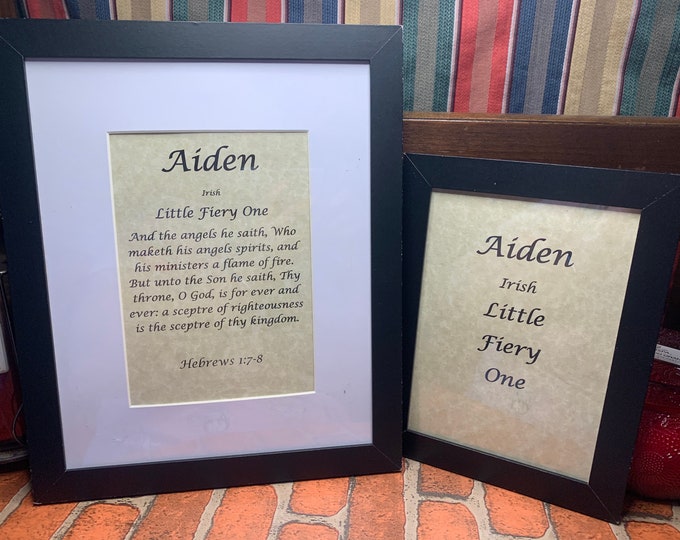 Aiden
Irish
Little Fiery One
And the angels he saith, Who
maketh his angels spirits, and
his ministers a flame of fire.
But unto the Son he saith, Thy
throne, O God, is for ever and
ever: a sceptre of righteousness
is the sceptre of thy kingdom.
Hebrews 1:7-8
Aiden
Irish
Little
Fiery
One